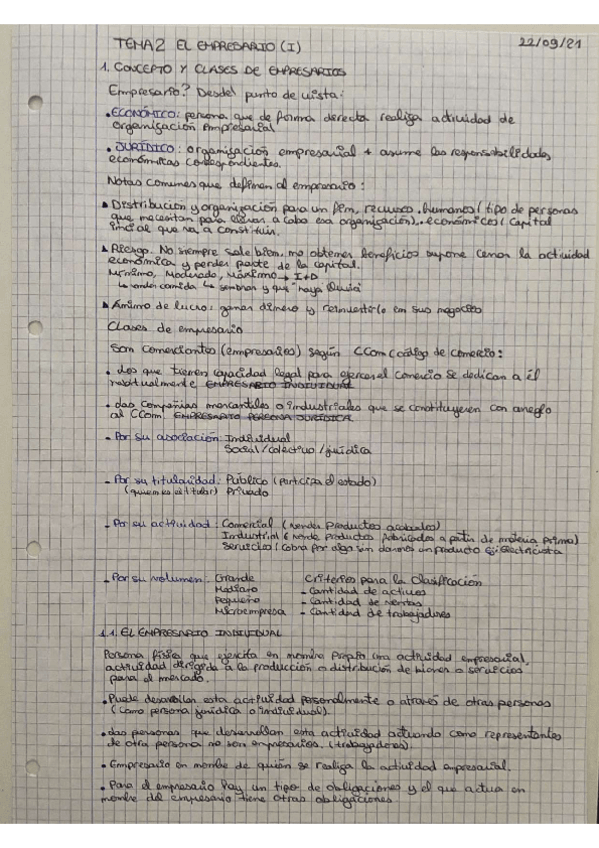 TEMA 2 EL EMPRESARIO (I) 22/09/21
1. CONCEPTO Y CLASES DE EMPRESARIOS
Empresario? Desdel punto de vista:
• ECONÓMICO: persona que de forma directa realiza actividad de
organización empresarial
• JURÍDICO: organización empresarial + asume las responsabilidades
económicas correspondientes.
Notas comunes que definen al empresario:
▲ Distribución y organización para un fin, recursos humanos (tipo de personas
que necesitan para llevar a cabo esa organización), económicos (capital
inicial que va a constituir.
▲ Riesgo. No siempre sale bien, no obtener beneficios supone cerrar la actividad
económica y perder parte de la capital.
Mínimo, Moderado, Máximo → I+D
↳ vender comida ↳ sembrar y que "haya lluvia"
▲ Ánimo de lucro: ganar dinero y reinvertirlo en sus negocios
Clases de empresario
Son comerciantes (empresarios) según CCom (código de comercio:
• los que tienen capacidad legal para ejercer el comercio se dedican a él
habitualmente EMPRESARIO INDIVIDUAL
• las compañias mercantiles o industriales que se constituyeren con arreglo
al CCom. EMPRESARIO PERSONA JURÍDICA
- Por su asociación: Individual
Social / colectivo / jurídica
- Por su titularidad: Público (participa el estado)
(quien es el titular) Privado
- Por su actividad: Comercial (vender productos acabados)
Industrial (vende productos fabricados a partir de materia prima)
Servicios (Cobra por algo sin darnos un producto Ej: Electricista
- Por su volumen: Grande Criterios para la Clasificación
Mediano - Cantidad de activos
Pequeño - Cantidad de ventas
Microempresa - Cantidad de trabajadores
1.1. EL EMPRESARIO INDIVIDUAL
Persona física que ejercita en nombre propio una actividad empresarial,
actividad dirigida a la producción o distribución de bienes o servicios
para el mercado.
• Puede desarrollar esta actividad personalmente o através de otras personas
(como persona jurídica o individual).
• las personas que desarrollan esta actividad actuando como representantes
de otra persona no son empresarios. (trabajadores).
• Empresario en nombre de quién se realiza la actividad empresarial.
• Para el empresario hay un tipo de obligaciones y el que actua en
nombre del empresario tiene otras obligaciones